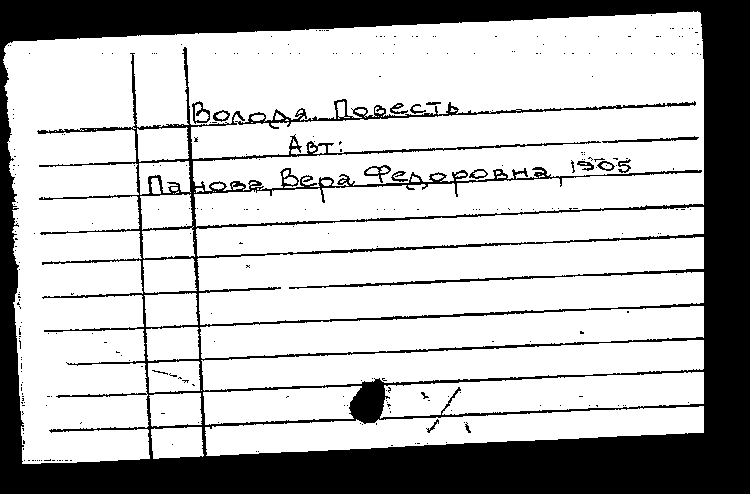 Володя. Повесть.
Авт:
Панова, Вера Федоровна, 1905